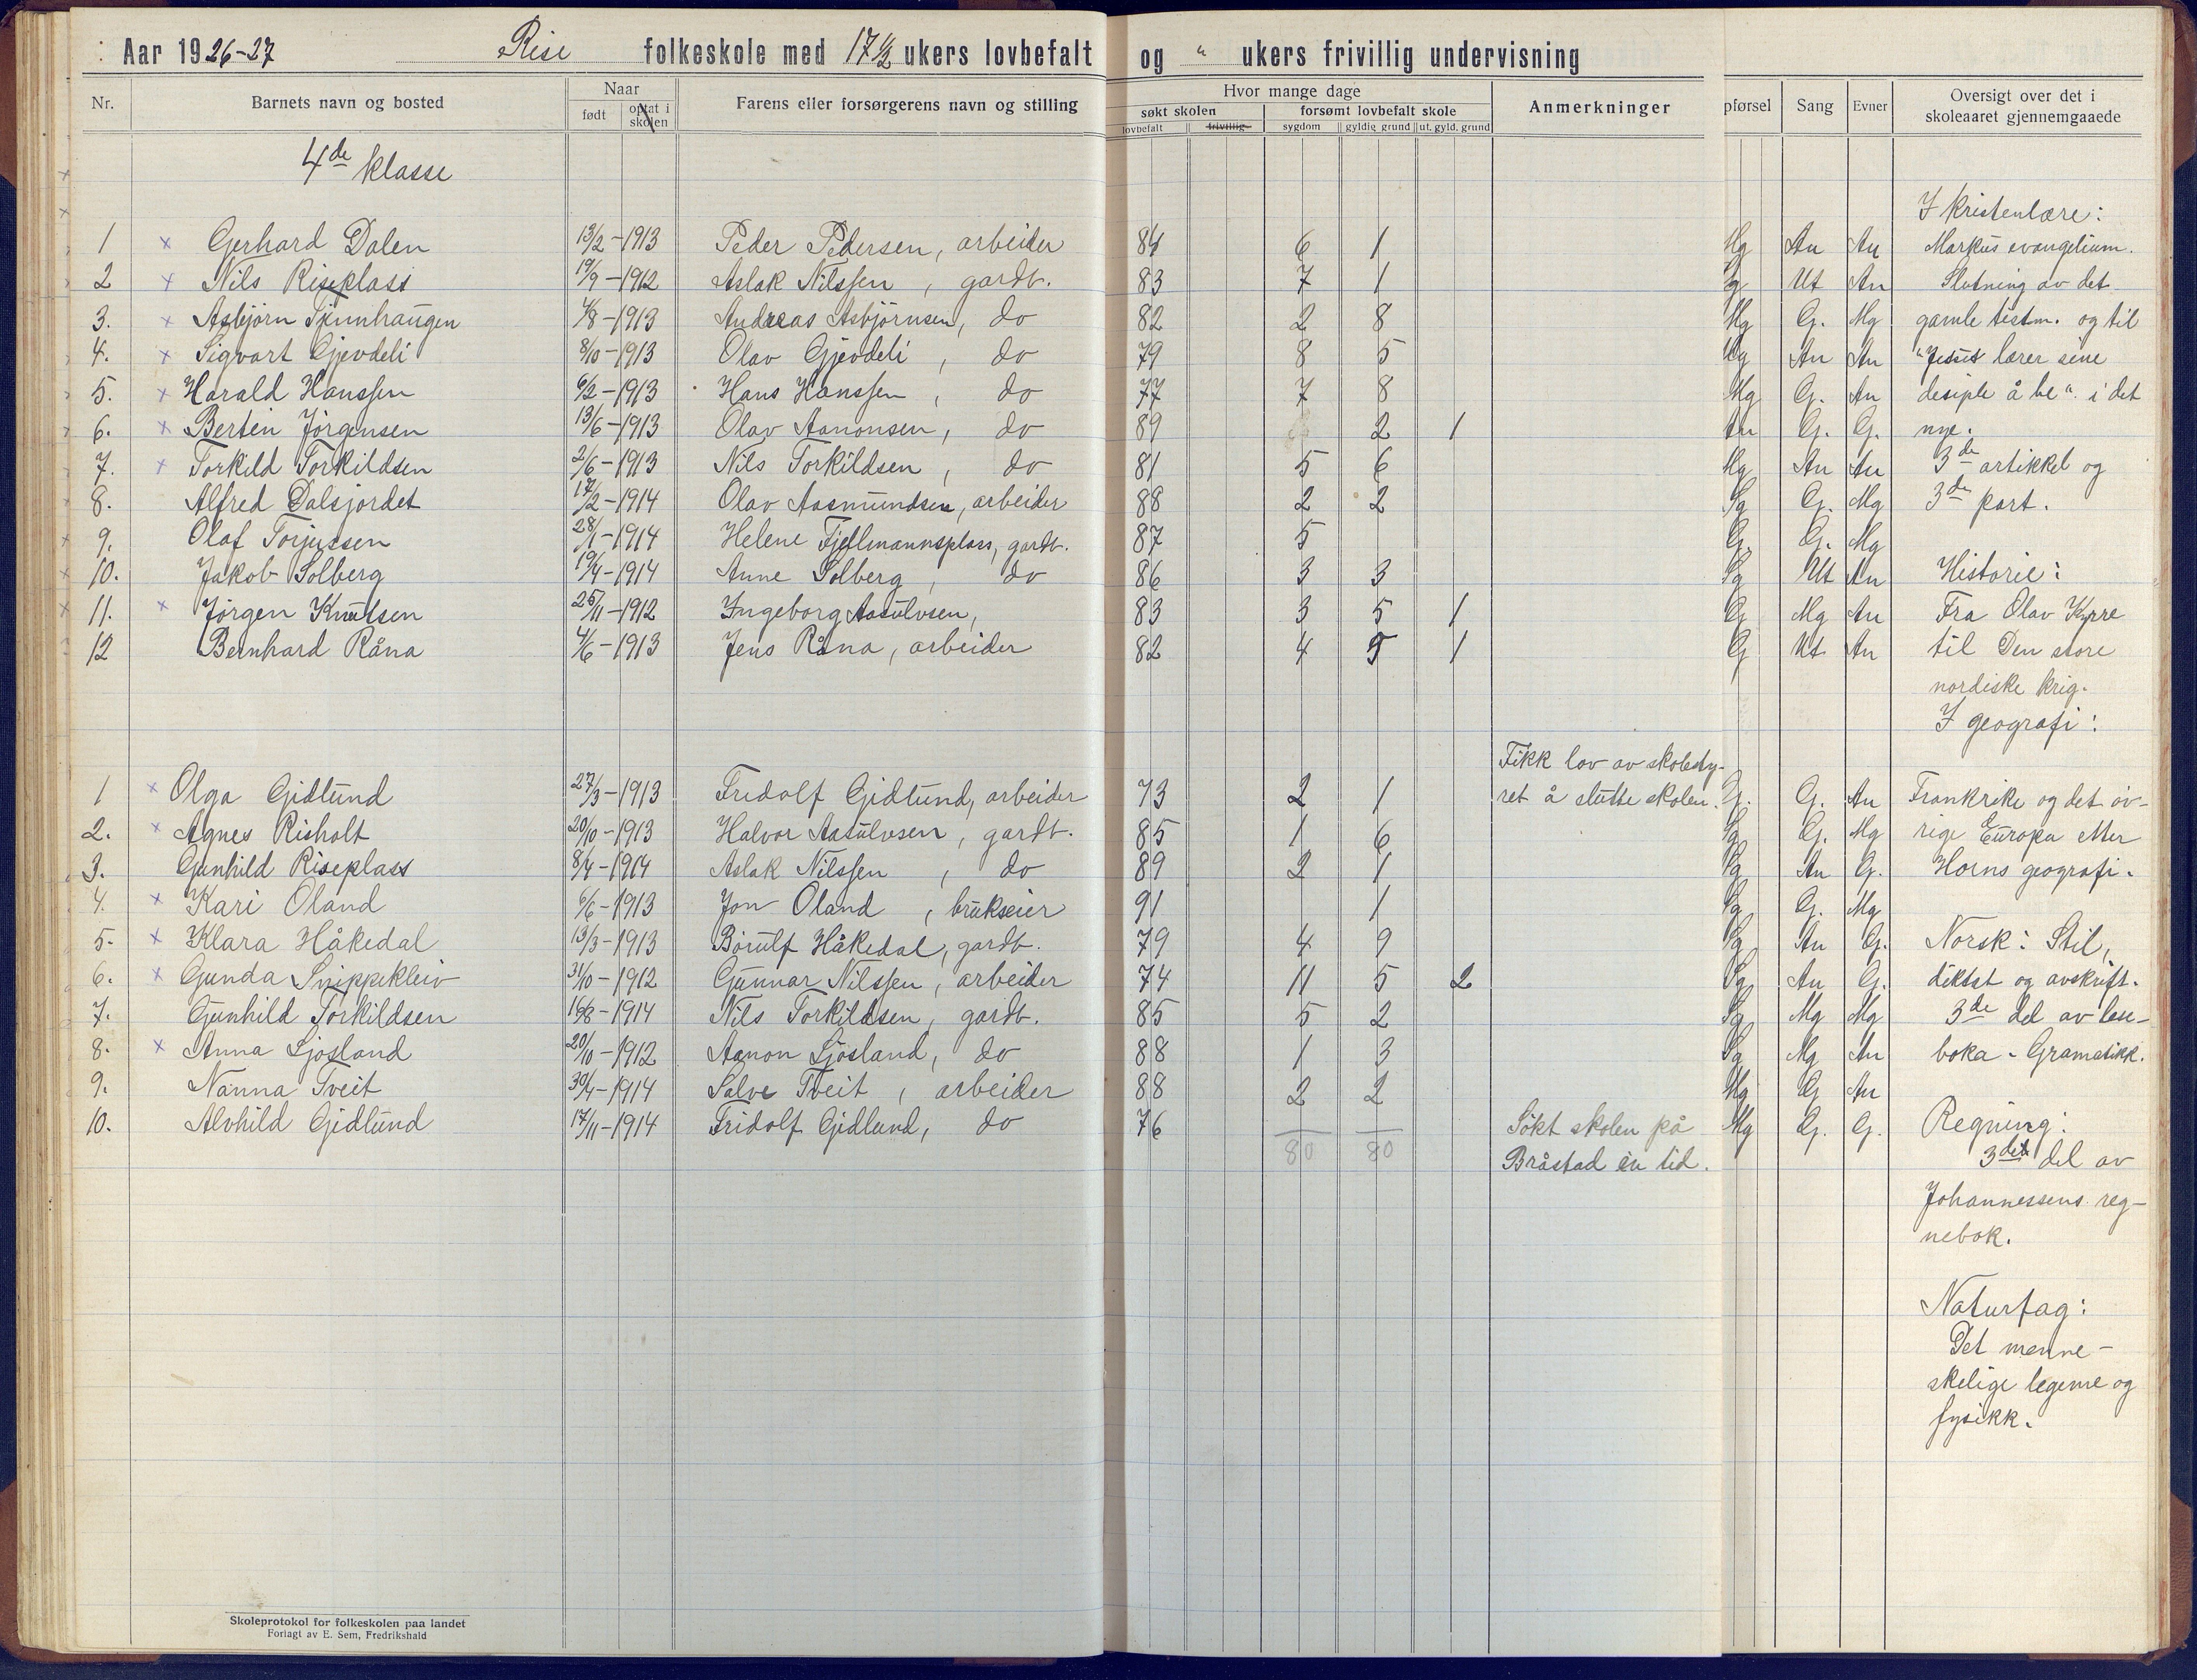 Aar 1926-27 Rise folkeskole med 17 1/2 ukers lovbefalt og " ukers frivillig undervisning
Nr. Barnets navn og bosted Naar født optat i skolen Farens eller forsørgerens navn og stilling Hvor mange dage søkt skolen lovbefalt frivillig forsømt lovbefalt skole sygdom gyldig grund ut. gyld. grund Anmerkninger pførsel Sang Evner Oversigt over det i skoleaaret gjennemgaaede
4de klasse
I kristenlære:
1 × Gerhard Dalen 13/2-1913 Peder Pedersen, arbeider 84 6 1 Mg An An Markus evangelium.
2 × Nils Riseplass 19/9-1912 Aslak Nilssen, gardb. 83 7 1 Sg Ut An Slutning av det
3. × Asbjørn Tjennhaugen 4/8-1913 Andreas Asbjørnsen, do 82 2 8 Mg G. Mg gamle testm. og til
4. × Sigvart Gjevdeli 8/10-1913 Olav Gjevdeli, do 79 8 5 Mg An An "Jesus lærer sine
5. × Harald Hanssen 6/2-1913 Hans Hanssen, do 77 7 8 Mg G. An desiple å be". i det
6. × Bertin Jörgensen 13/6-1913 Olav Aanonsen, do 89 2 1 An G. G. nye.
7. × Torkild Torkildsen 2/6-1913 Nils Torkildsen, do 81 5 6 Mg An An 3de artikkel og
8. Alfred Dalsjordet 17/2-1914 Olav Aasmundsen, arbeider 88 2 2 Sg G. Mg 3de part.
9. Olaf Torjussen 28/1-1914 Helene Fjellmannsplass, gardb. 87 5 G. G. Mg
10. Jakob Solberg 19/4-1914 Anne Solberg, do 86 3 3 Sg Ut An Historie:
11. × Jørgen Knutsen 25/11-1912 Ingeborg Aasulvsen, 83 3 5 1 G Mg An Fra Olav Kyrre
12 Bernhard Råna 4/6-1913 Jens Råna, arbeider 82 4 5 1 G Ut An til Den store
nordiske krig.
I geografi:
Fikk lov av skolesty-
1 × Olga Gidlund 27/3-1913 Fridolf Gidlund, arbeider 73 2 1 ret å slutte skolen. G. G. An Frankrike og det öv-
2. × Agnes Risholt 20/10-1913 Halvor Aasulvsen, gardb. 85 1 6 Sg G. Mg rige Europa etter
3. Gunhild Riseplass 8/4-1914 Aslak Nilssen, do 89 2 1 Sg An G. Horns geografi.
4. × Kari Öland 6/6-1913 Jon Öland, brukseier 91 1 Sg G. Mg
5. × Klara Håkedal 13/3-1913 Börulf Håkedal, gardb. 79 4 9 Sg An G. Norsk: Stil,
6. × Gunda Snippekleiv 31/10-1912 Gunnar Nilssen, arbeider 74 11 5 2 Sg An G. diktat og avskrift.
7. Gunhild Torkildsen 16/8-1914 Nils Torkildsen, gardb. 85 5 2 Sg Mg Mg 3de del av lese-
8. × Anna Ljosland 20/10-1912 Aanon Ljösland, do 88 1 3 Sg Mg An boka. Gramatikk.
9. Nanna Tveit 30/4-1914 Salve Tveit, arbeider 88 2 2 Mg G An
10. Alvhild Gidlund 17/11-1914 Fridolf Gidlund, do 76 Sökt skolen på Mg G. G. Regning:
80 80 Bråstad en tid. 3die del av
Johannessens reg-
nebok.
Naturfag:
Det menne-
skelige legeme og
fysikk.
Skoleprotokol for folkeskolen paa landet
Forlagt av E. Sem, Fredrikshald